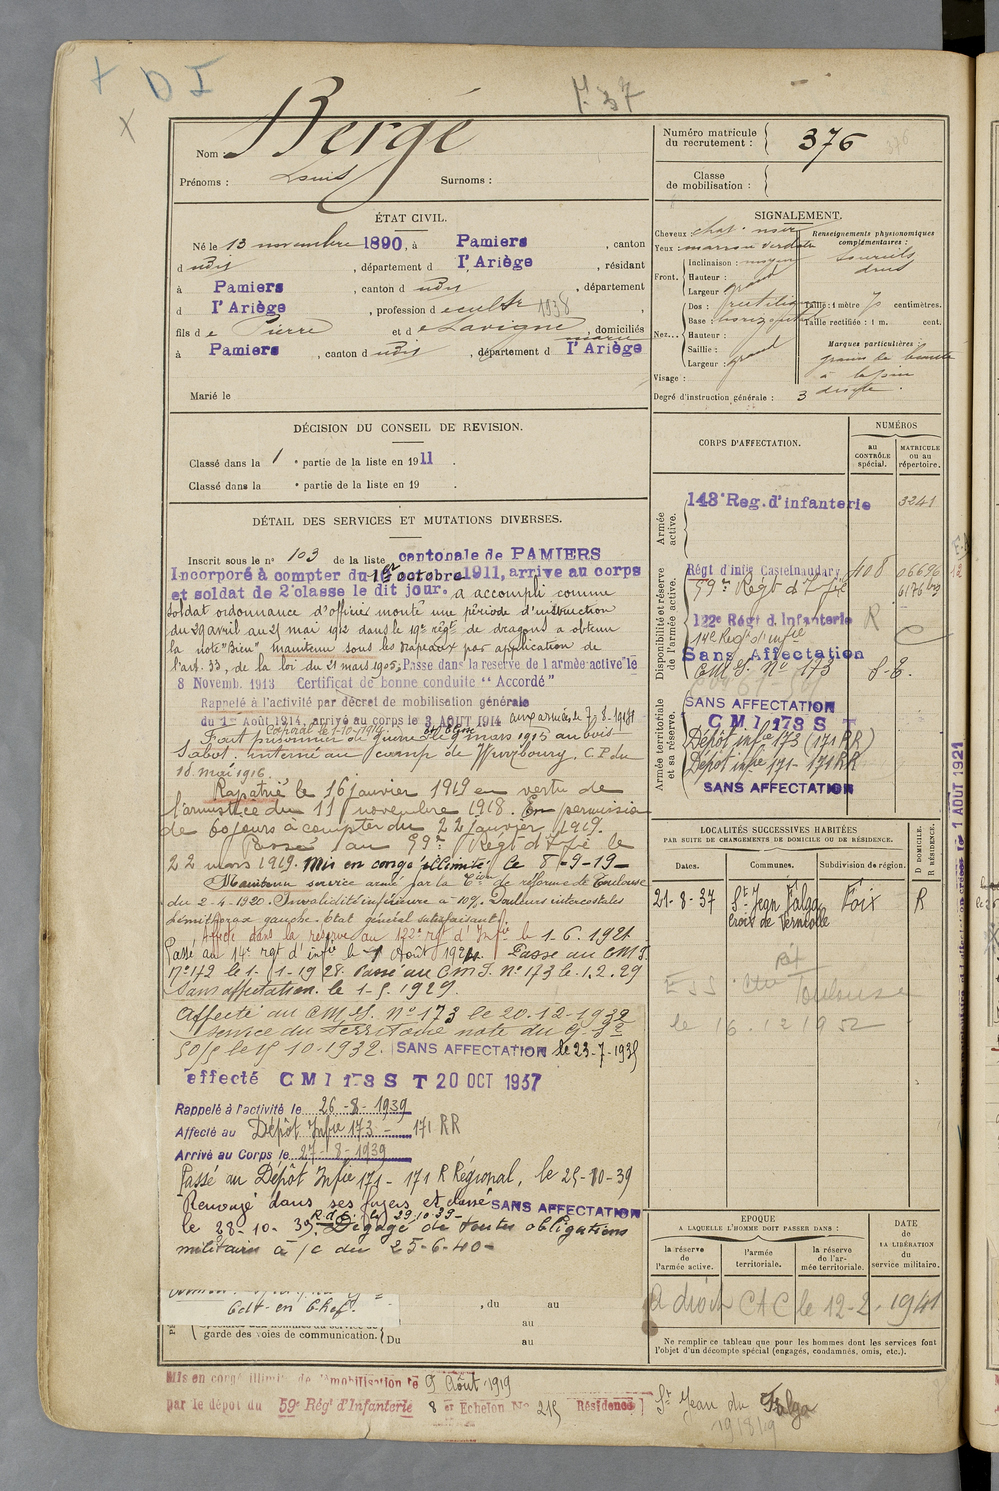 + D I
X
Nom : Bergé
Prénoms : Louis Surnoms :
Numéro matricule du recrutement : 376
Classe de mobilisation :
ÉTAT CIVIL.
Né le 13 novembre 1890, à Pamiers , canton
d udis , département d l'Ariège , résidant
à Pamiers , canton d udis , département
d l'Ariège , profession d e cultr 1938
fils d e Pierre et d e Lavigne marie , domiciliés
à Pamiers , canton d udis , département d l'Ariège
Marié le
SIGNALEMENT.
Cheveux chat. noir
Yeux marron verdâtre
Front. Inclinaison : moyen
Hauteur : grand
Largeur :
Nez... Dos : rectiligne
Base : horizontal
Hauteur :
Saillie :
Largeur : grand
Visage :
Renseignements physionomiques complémentaires :
sourcils
drus
Taille : 1 mètre 70 centimètres.
Taille rectifiée : 1 m. cent.
Marques particulières :
grain de beauté
à
droite.
Degré d'instruction générale : 3
DÉCISION DU CONSEIL DE REVISION.
Classé dans la 1 e partie de la liste en 1911 .
Classé dans la e partie de la liste en 19 .
DÉTAIL DES SERVICES ET MUTATIONS DIVERSES.
Inscrit sous le n° 103 de la liste cantonale de PAMIERS
Incorporé à compter du 1er octobre 1911, arrive au corps
et soldat de 2e classe le dit jour. a accompli comme
soldat ordonnance d'officier monté une période d'instruction
du 29 avril au 25 mai 1912 dans le 19e régt de dragons a obtenu
la note "Bien" maintenu sous les drapeaux par application de
l'art. 33, de la loi du 21 mars 1905, Passé dans la réserve de l'armée active le
8 Novemb. 1913 Certificat de bonne conduite "Accordé"
Rappelé à l'activité par décret de mobilisation générale
du 1er Août 1914, arrivé au corps le 3 AOUT 1914 aux armées le 7-8-1914
Caporal le 1-10-1914.
Fait prisonnier de guerre le 9 mars 1915 au bois
Sabot. interné au camp de Wurzbourg. C.P. du
18 mai 1916.
Rapatrié le 16 janvier 1919 en vertu de
l'armistice du 11 novembre 1918. En permission
de 60 jours à compter du 22 janvier 1919.
Passé au 59e Régt d'Infie le
22 mars 1919. Mis en congé illimité le 8-9-19-
Maintenu service armé par la Cion de réforme de Toulouse
du 2-4-1920. Invalidité inférieure à 10%. Douleurs intercostales
hémithorax gauche. Etat général satisfaisant.
Affecté dans la réserve au 122e rgt d'Infie le 1-6-1921
Passé au 14e rgt d'infie le 1 Août 1924. Passé au CMI.
N°172 le 1-1-1928. Passé au CMI. N°173 le 1.2.29
Sans affectation. le 1-5.1929.
Affecté au CMI. N° 173 le 20-12-1932
service du territoire note du G.
5015 le 15 10-1932. SANS AFFECTATION le 23-7-1935
affecté CMI 173 S T 20 OCT 1937
Rappelé à l'activité le 26-8-1939
Affecté au Dépôt Infie 173 - 171 RR
Arrivé au Corps le 27-8-1939
Passé au Dépôt Infie 171 - 171 R Régional, le 25-10-39
Renvoyé dans ses foyers et classé SANS AFFECTATION
le 28-10-39. R.d.f. le 29.10.39- Dégagé de toutes obligations
militaires à /c du 25-6-40-
Gdt en Chef.
, du au
au
garde des voies de communication. Du au
CORPS D'AFFECTATION.
NUMÉROS
au CONTRÔLE spécial.
MATRICULE ou au répertoire.
Armée active.
143e Reg. d'infanterie 3241
Disponibilité et réserve de l'armée active.
Régt d'infie Castelnaudary 408 06696
59e Régt d'Infie
122e Régt d. Infanterie R
14e Regt d'infie
Sans Affectation
CMI. N° 173 S-E.
Armée territoriale et sa réserve.
SANS AFFECTATION
CMI 173 S T
Dépôt infie 173 (171 RR)
Dépôt infie 171 - 171 RR
SANS AFFECTATION
1 AOUT 1921
LOCALITÉS SUCCESSIVES HABITÉES
PAR SUITE DE CHANGEMENTS DE DOMICILE OU DE RÉSIDENCE.
Dates. Communes. Subdivision de région. D DOMICILE. R RÉSIDENCE.
21-8-37 St Jean Falga Foix R
Croix de Verniolle
ESS Ctre Réf Toulouse
le 16.12 1952
EPOQUE
A LAQUELLE L'HOMME DOIT PASSER DANS :
DATE de LA LIBÉRATION du service militaire.
la réserve de l'armée active.
l'armée territoriale.
la réserve de l'armée territoriale.
a droit CAC le 12-2-1941
Ne remplir ce tableau que pour les hommes dont les services font
l'objet d'un décompte spécial (engagés, condamnés, omis, etc.).
Mis en congé illimité de démobilisation le 9 Août 1919
par le dépôt du 59e Régt d'Infanterie 8 er Echelon No 215 Résidence St Jean du Falga
19/8/19